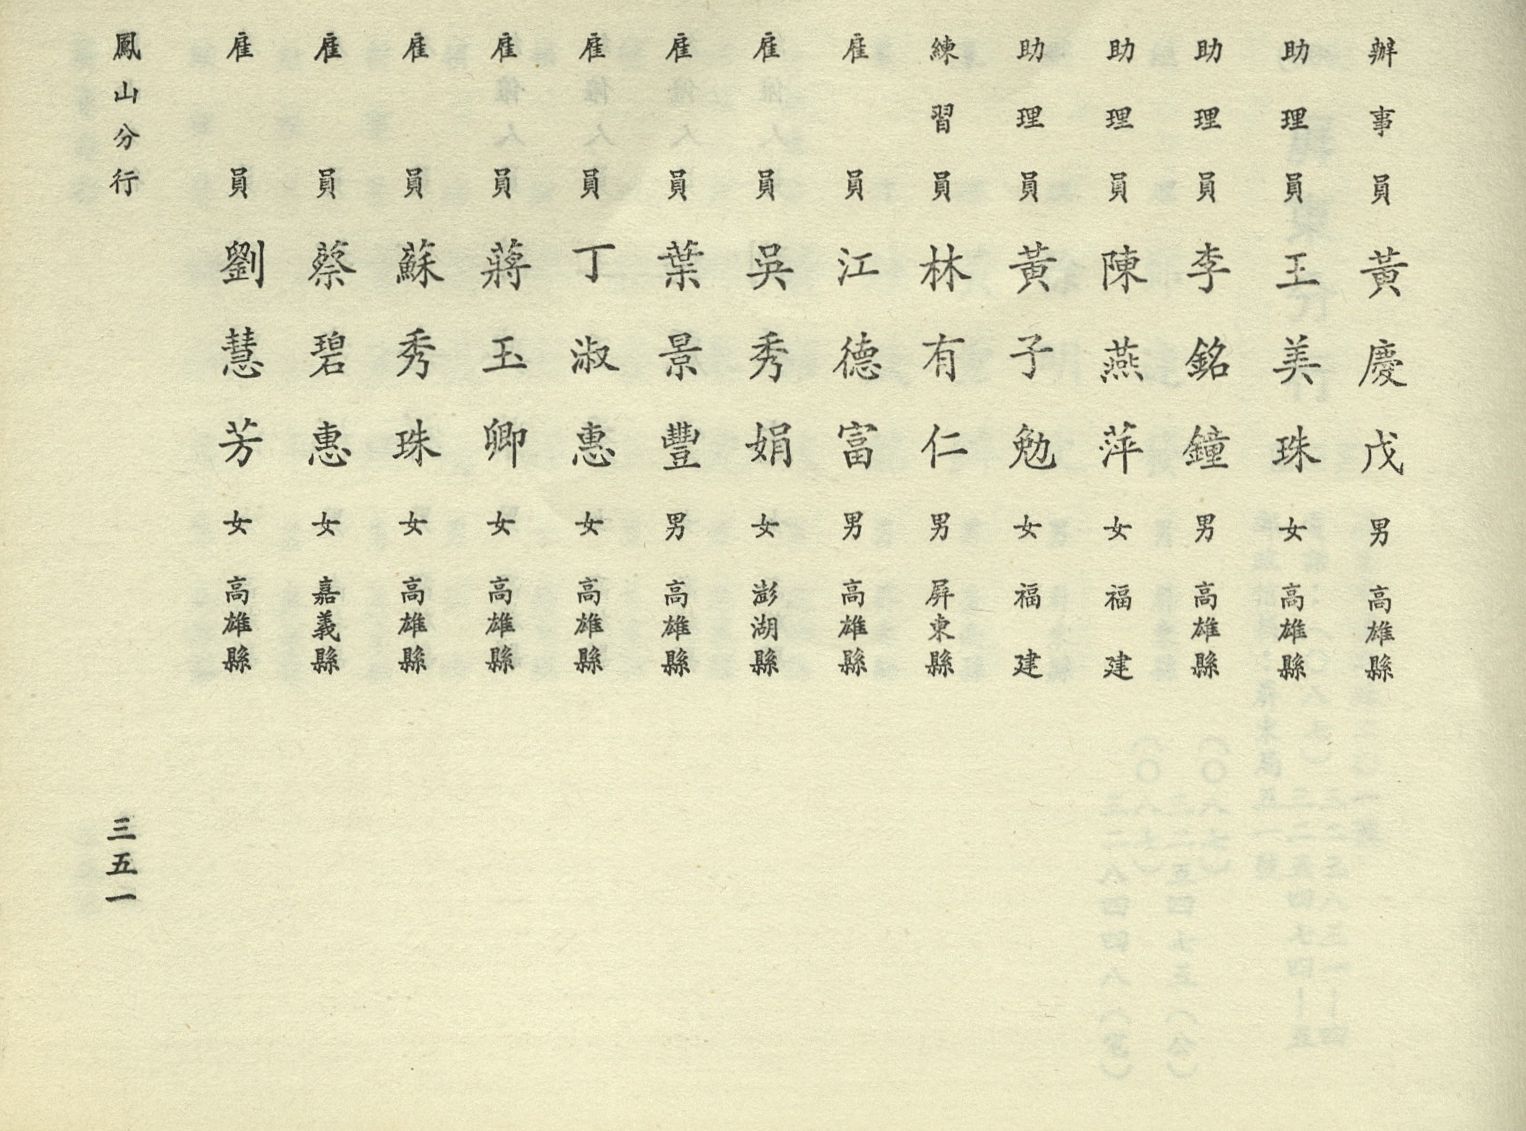 辦事員 黃慶戊 男 高雄縣
助理員 王美珠 女 高雄縣
助理員 李銘鐘 男 高雄縣
助理員 陳燕萍 女 福建
助理員 黃子勉 女 福建
練習員 林有仁 男 屏東縣
雇員 江德富 男 高雄縣
雇員 吳秀娟 女 澎湖縣
雇員 葉景豐 男 高雄縣
雇員 丁淑惠 女 高雄縣
雇員 蔣玉卿 女 高雄縣
雇員 蘇秀珠 女 高雄縣
雇員 蔡碧惠 女 嘉義縣
雇員 劉慧芳 女 高雄縣
鳳山分行 三五一